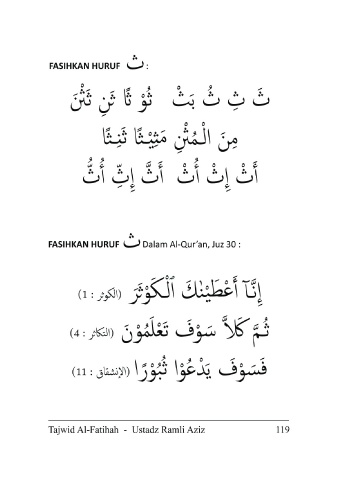 FASIHKAN HURUF ث :
ثَ ثِ ثُ بَثْ ثُوْ ثًا ثَنِ ثَثْنَ
مِنَ الْمُثْنِ مَثِيْثًا ثَنِثًا
أَثْ إِثْ أُثْ أَثَّ إِثِّ أُثُّ
FASIHKAN HURUF ث Dalam Al-Qur'an, Juz 30 :
إِنَّآ أَعْطَيْنٰكَ الْكَوْثَرَ (الكوثر : 1)
ثُمَّ كَلاَّ سَوْفَ تَعْلَمُوْنَ (التكاثر : 4)
فَسَوْفَ يَدْعُوْا ثُبُوْرًا (الإنشقاق : 11)
Tajwid Al-Fatihah - Ustadz Ramli Aziz 119